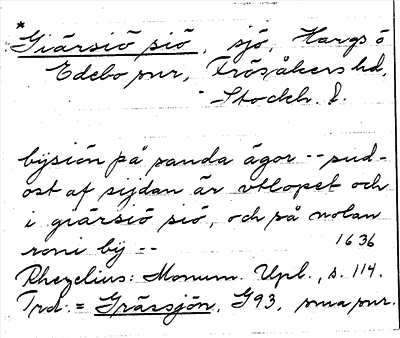 *
Giärsiö siö, sjö, Hargs o
Edebo snr, Frösåkers hd,
Stockh. l.
bysiön på sanda ägor -- sud-
ost af sijdan är vtlopet och
i giärsiö siö, och på nolan
roni bÿ --
1636
Rhezelius: Monum. Upl., s. 114.
Trol. = Gräsjön, G93, sma snr.